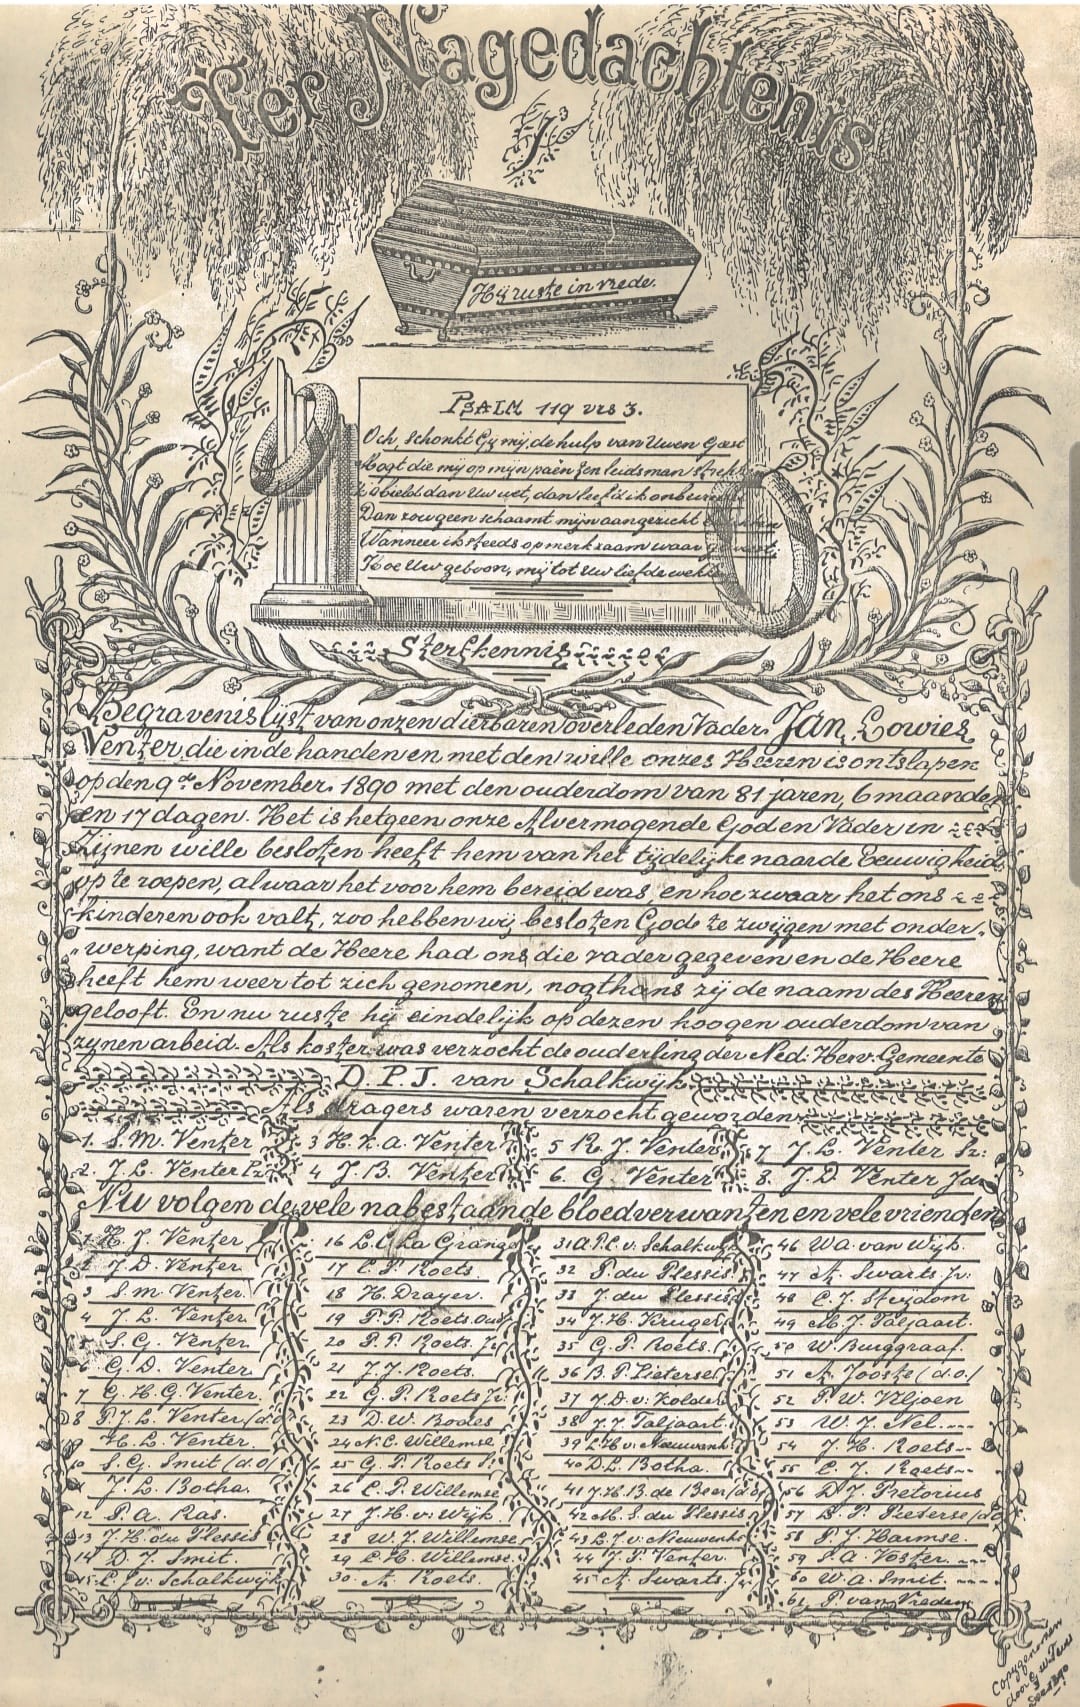 Ter Nagedachtenis
Hij ruste in vrede.
PSALM 119 vrs 3.
Och, schonkt Gij mij, de hulp van Uwen Geest
Mogt die mij op mijn paên ten leidsman
'k hield dan Uw wet, dan leefd ik
Dan zou geen schaamt mijn aangezicht
Wanneer ik steeds opmerkzaam waar
Hoe Uw geboôn, mij tot Uw liefde
Sterfkennis
Begravenislijst van onzen dierbaren overleden Vader, Jan Lowies
Venter, die in de handen en met den wille onzes Heeren is ontslapen
op den 9de November, 1890 met den ouderdom van 81 jaren, 6 maanden
en 17 dagen. Het is hetgeen onze Alvermogende God en Vader in
Zijnen wille besloten heeft hem van het tijdelijke naar de Eeuwigheid
op te roepen, alwaar het voor hem bereid was, en hoe zwaar het ons
kinderen ook valt, zoo hebben wij besloten Gode te zwijgen met onder-
werping, want de Heere had ons die vader gegeven en de Heere
heeft hem weer tot zich genomen, nogthans zij de naam des Heeren
gelooft. En nu ruste hij eindelijk op dezen hoogen ouderdom van
zijnen arbeid. Als koster was verzocht de ouderling der Ned. Herv. Gemeente
D. P. J. van Schalkwijk
Als dragers waren verzocht geworden
1. S. M. Venter 3 H. Z. A. Venter 5 R. J. Venter 7 J. L. Venter Sr:
2. J. L. Venter Pz 4 J. B. Venter 6. G. Venter 8. J. D. Venter Jdz
Nu volgen de vele nabestaande bloedverwanten en vele vrienden
1 H. J. Venter
2 J. D. Venter
3 S. M. Venter
4 J. L. Venter
5 S. G. Venter
G. D. Venter
7 G. H. G. Venter
8 P. J. L. Venter
H. L. Venter
10 S. G. Smit (d.o)
J. L. Botha
12 P. A. Ras.
13 J. H. du Plessis
14 D. J. Smit.
15 L. J. v. Schalkwijk
16 L. C. La Grange
17 C. P. Roets.
18 H. Drayer.
19 P. P. Roets Oud
20 P. P. Roets. Jr
21 J. J. Roets.
22 G. P. Roets Jr
23 D. W. Bodes
24 N. C. Willemse
25 G. P. Roets S.
26 C. P. Willemse
27 J. H. v. Wijk.
28 W. J. Willemse
29 C. H. Willemse
30. A. Roets.
31 A. P. C. v. Schalkwijk
32 P. du Plessis.
33 J. du Plessis
34 J. H. Kruger
35 G. P. Roets.
36 B. P. Pietersen
37 J. D. v. Kolder
38 J. J. Taljaart
39 L. H. v. Nieuwenh
40 D. L. Botha.
41 J. H. B. de Beer (d.o)
42 M. S. du Plessis
43 L. J. v. Nieuwenh
44 J. P. Venter.
45 A. Swarts.
46 W. A. van Wijk.
47 A. Swarts. Jr:
48 C. J. Steijdom
49 M. J. Taljaart.
50 W. Burggraaf.
51 A. Jooste (d.o.)
52 P. W. Viljoen
53 W. J. Nel
54 J. H. Roets
55 C. J. Roets
56 D. J. Pretorius
57 D. P. Pieterse (d.o)
58 P. J. Harmse.
59 S. A. Voster.
60 W. A. Smit.
61 P. van Vreden
Copygenomen
door